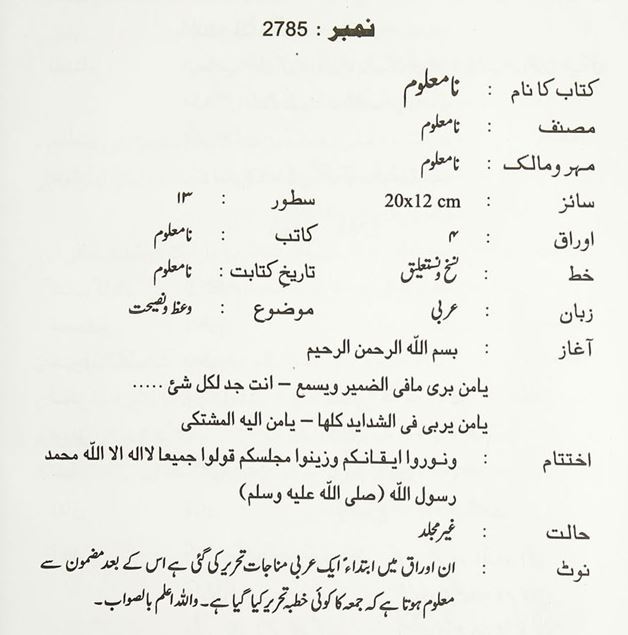 نمبر : 2785
کتاب کا نام : نامعلوم
مصنف : نامعلوم
مہر و مالک : نامعلوم
سائز : 20x12 cm سطور : ۱۳
اوراق : ۴ کاتب : نامعلوم
خط : نسخ و نستعلیق تاریخ کتابت : نامعلوم
زبان : عربی موضوع : وعظ و نصیحت
آغاز : بسم اللہ الرحمن الرحیم
یامن یری مافی الضمیر ویسمع – انت جد لکل شئ .....
یامن یربی فی الشداید کلھا – یامن الیہ المشتکی
اختتام : ونوروا ایقانکم وزینوا مجلسکم قولوا جمیعا لاالہ الا اللہ محمد
رسول اللہ (صلی اللہ علیہ وسلم)
حالت : غیر مجلد
نوٹ : ان اوراق میں ابتداءً ایک عربی مناجات تحریر کی گئی ہے اس کے بعد مضمون سے
معلوم ہوتا ہے کہ جمعہ کا کوئی خطبہ تحریر کیا گیا ہے۔ واللہ اعلم بالصواب۔